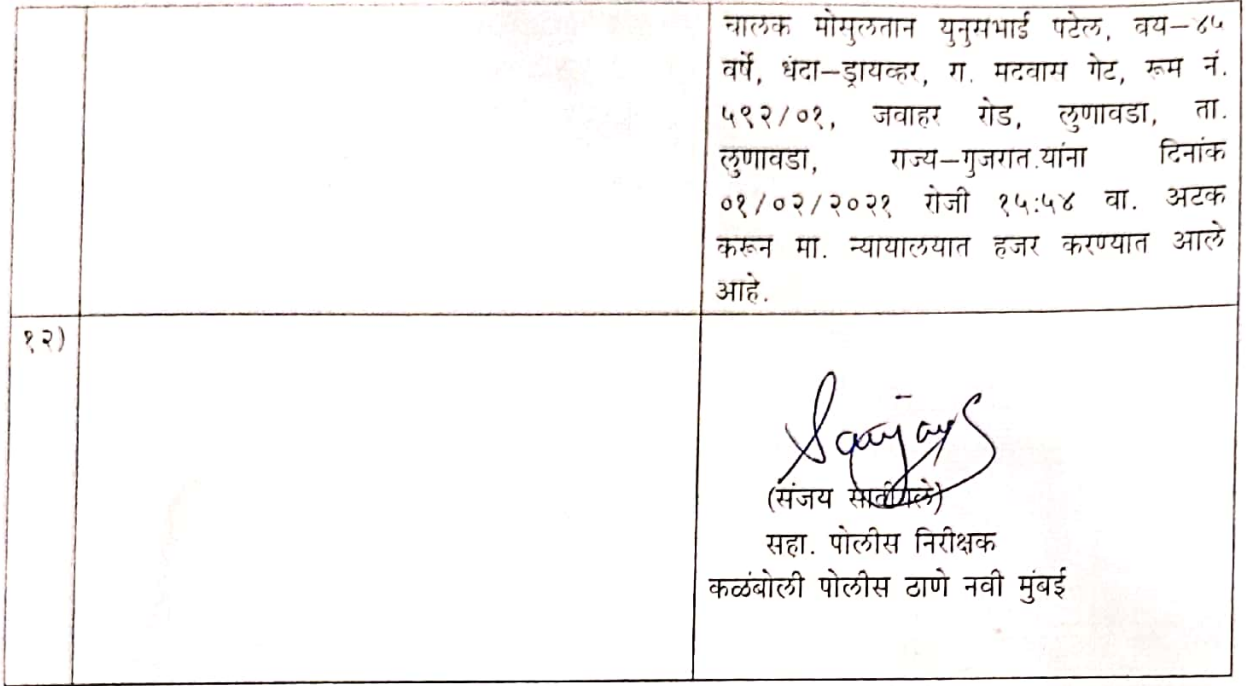 चालक मोसुलतान युनुसभाई पटेल, वय–४५
वर्षे, धंदा–ड्रायव्हर, ग. मदवास गेट, रूम नं.
५९२/०१, जवाहर रोड, लुणावडा, ता.
लुणावडा, राज्य–गुजरात.यांना दिनांक
०१/०२/२०२१ रोजी १५:५४ वा. अटक
करून मा. न्यायालयात हजर करण्यात आले
आहे.
१२)
(संजय
सहा. पोलीस निरीक्षक
कळंबोली पोलीस ठाणे नवी मुंबई